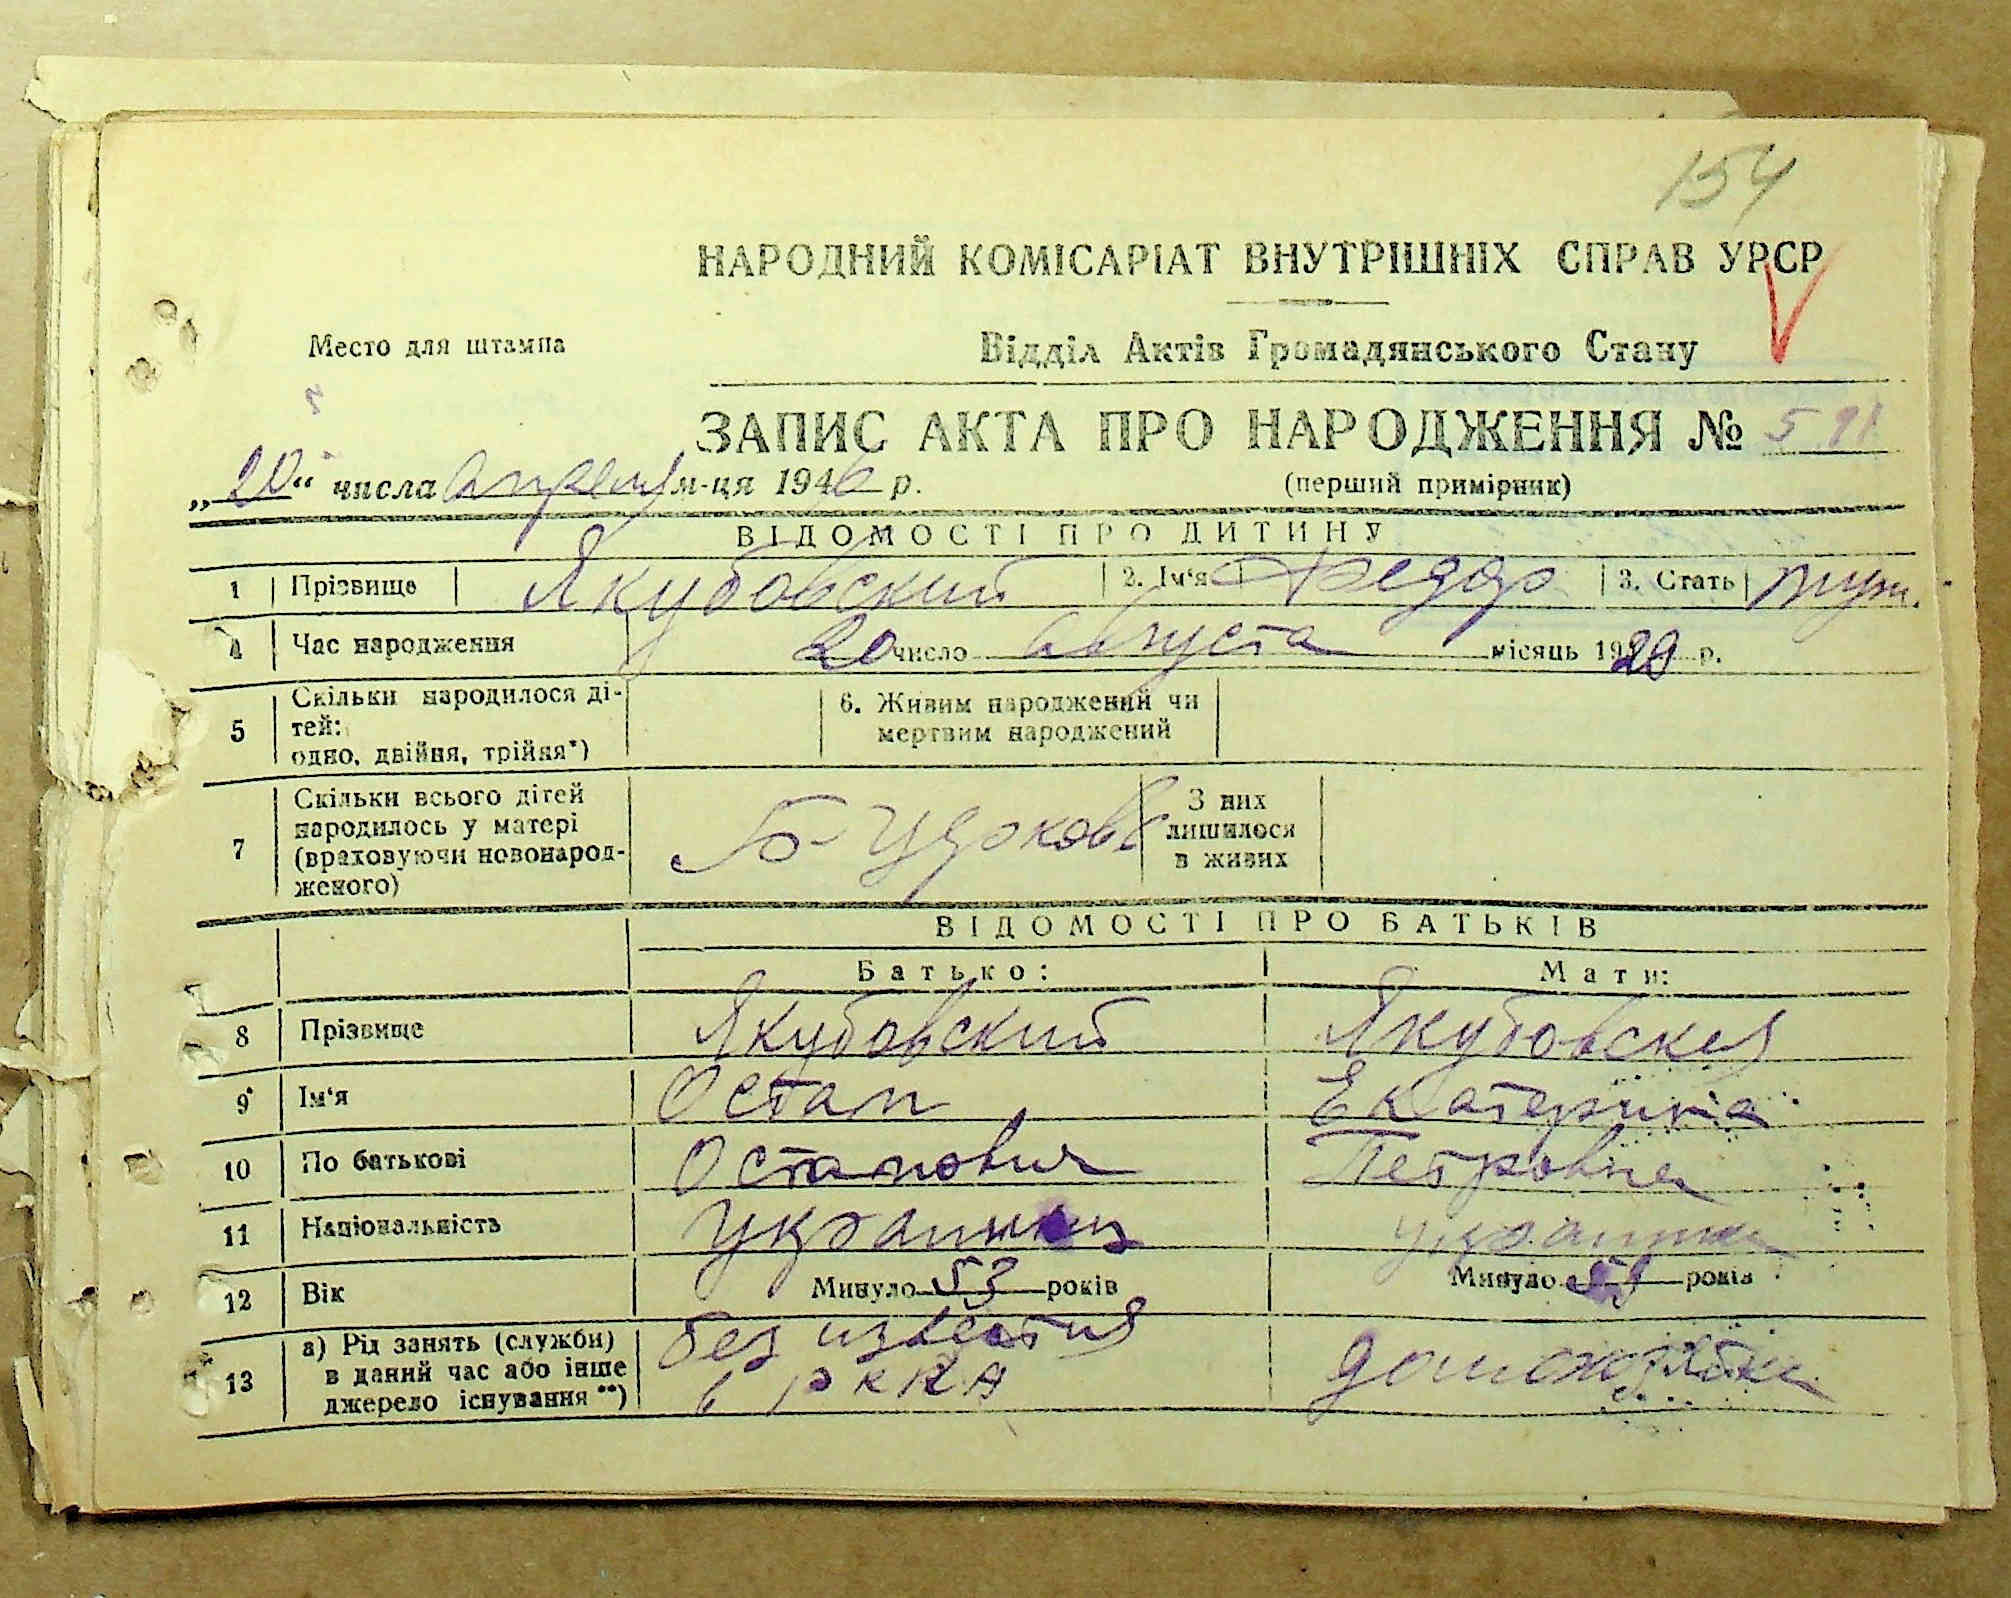 154
НАРОДНИЙ КОМІСАРІАТ ВНУТРІШНІХ СПРАВ УРСР
Место для штампа
Відділ Актів Громадянського Стану
ЗАПИС АКТА ПРО НАРОДЖЕННЯ № 591
„20“ числа апреля м-ця 1946 р.
(перший примірник)
ВІДОМОСТІ ПРО ДИТИНУ
1 Прізвище Якубовский 2. Ім‘я Федор 3. Стать муж.
4 Час народження 20 число августа місяць 1920 р.
5 Скільки народилося ді-
тей:
одно, двійня, трійня*)
6. Живим народжений чи
мертвим народжений
7 Скільки всього дітей
народилось у матері
(враховуючи новонарод-
женого)
Б-Церковь
З них
лишилося
в живих
ВІДОМОСТІ ПРО БАТЬКІВ
Батько: Мати:
8 Прізвище Якубовский Якубовская
9 Ім‘я Остап Екатерина
10 По батькові Остапович Петровна
11 Національність украинец украинка
12 Вік Минуло 53 років Минуло років
13 а) Рід занять (служби)
в даний час або інше
джерело існування **)
без известия
в РККА
домохозяйка